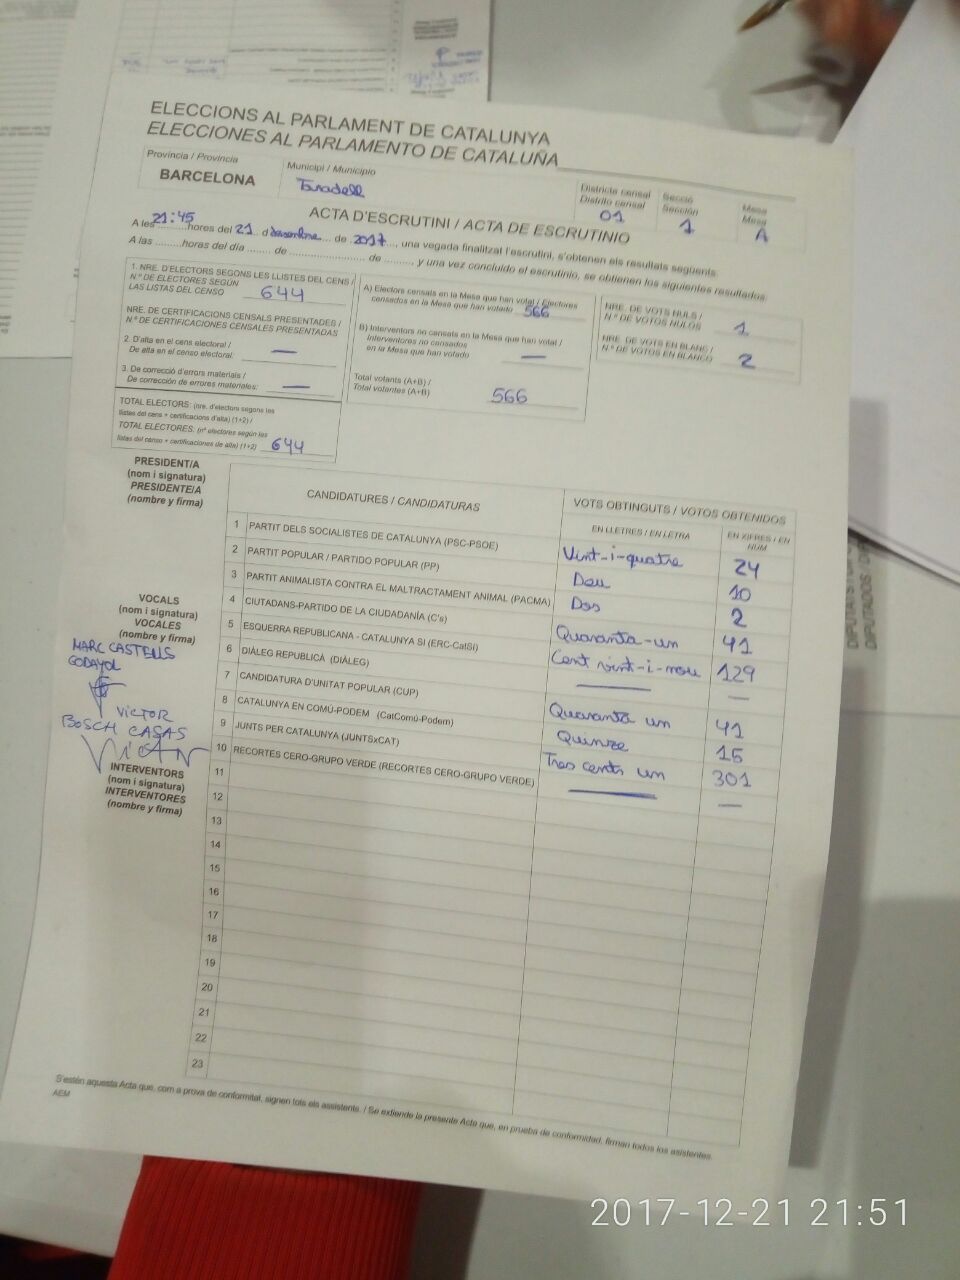 ELECCIONS AL PARLAMENT DE CATALUNYA
ELECCIONES AL PARLAMENTO DE CATALUÑA
Província / Provincia
BARCELONA
Municipi / Municipio
Taradell
Districte censal
Distrito censal
01
Secció
Sección
1
Mesa
Mesa
A
ACTA D'ESCRUTINI / ACTA DE ESCRUTINIO
A les 21:45 hores del 21 d desembre de 2017, una vegada finalitzat l'escrutini, s'obtenen els resultats següents.
A las .........horas del día ....... de ........................ de ........, y una vez concluido el escrutinio, se obtienen los siguientes resultados.
1. NRE. D'ELECTORS SEGONS LES LLISTES DEL CENS /
N.º DE ELECTORES SEGÚN
LAS LISTAS DEL CENSO 644
NRE. DE CERTIFICACIONS CENSALS PRESENTADES /
N.º DE CERTIFICACIONES CENSALES PRESENTADAS
2. D'alta en el cens electoral /
De alta en el censo electoral: —
3. De correcció d'errors materials /
De corrección de errores materiales: —
TOTAL ELECTORS: (nre. d'electors segons les
llistes del cens + certificacions d'alta) (1+2) /
TOTAL ELECTORES: (nº electores según las
listas del censo + certificaciones de alta) (1+2) 644
A) Electors censats en la Mesa que han votat / Electores
censados en la Mesa que han votado 566
B) Interventors no censats en la Mesa que han votat /
Interventores no censados
en la Mesa que han votado —
Total votants (A+B) /
Total votantes (A+B) 566
NRE. DE VOTS NULS /
N.º DE VOTOS NULOS 1
NRE. DE VOTS EN BLANC /
N.º DE VOTOS EN BLANCO 2
PRESIDENT/A
(nom i signatura)
PRESIDENTE/A
(nombre y firma)
VOCALS
(nom i signatura)
VOCALES
(nombre y firma)
MARC CASTELLS
GODAYOL
VICTOR
BOSCH CASAS
INTERVENTORS
(nom i signatura)
INTERVENTORES
(nombre y firma)
CANDIDATURES / CANDIDATURAS
VOTS OBTINGUTS / VOTOS OBTENIDOS
EN LLETRES / EN LETRA
EN XIFRES / EN
NÚM
1 PARTIT DELS SOCIALISTES DE CATALUNYA (PSC-PSOE) Vint-i-quatre 24
2 PARTIT POPULAR / PARTIDO POPULAR (PP) Deu 10
3 PARTIT ANIMALISTA CONTRA EL MALTRACTAMENT ANIMAL (PACMA) Dos 2
4 CIUTADANS-PARTIDO DE LA CIUDADANÍA (C's) Quaranta-un 41
5 ESQUERRA REPUBLICANA - CATALUNYA SÍ (ERC-CatSí) Cent vint-i-nou 129
6 DIÀLEG REPUBLICÀ (DIÀLEG) — —
7 CANDIDATURA D'UNITAT POPULAR (CUP) Quaranta un 41
8 CATALUNYA EN COMÚ-PODEM (CatComú-Podem) Quinze 15
9 JUNTS PER CATALUNYA (JUNTSxCAT) Tres cents un 301
10 RECORTES CERO-GRUPO VERDE (RECORTES CERO-GRUPO VERDE) — —
11
12
13
14
15
16
17
18
19
20
21
22
23
S'estén aquesta Acta que, com a prova de conformitat, signen tots els assistents. / Se extiende la presente Acta que, en prueba de conformidad, firman todos los asistentes.
AEM
2017-12-21 21:51